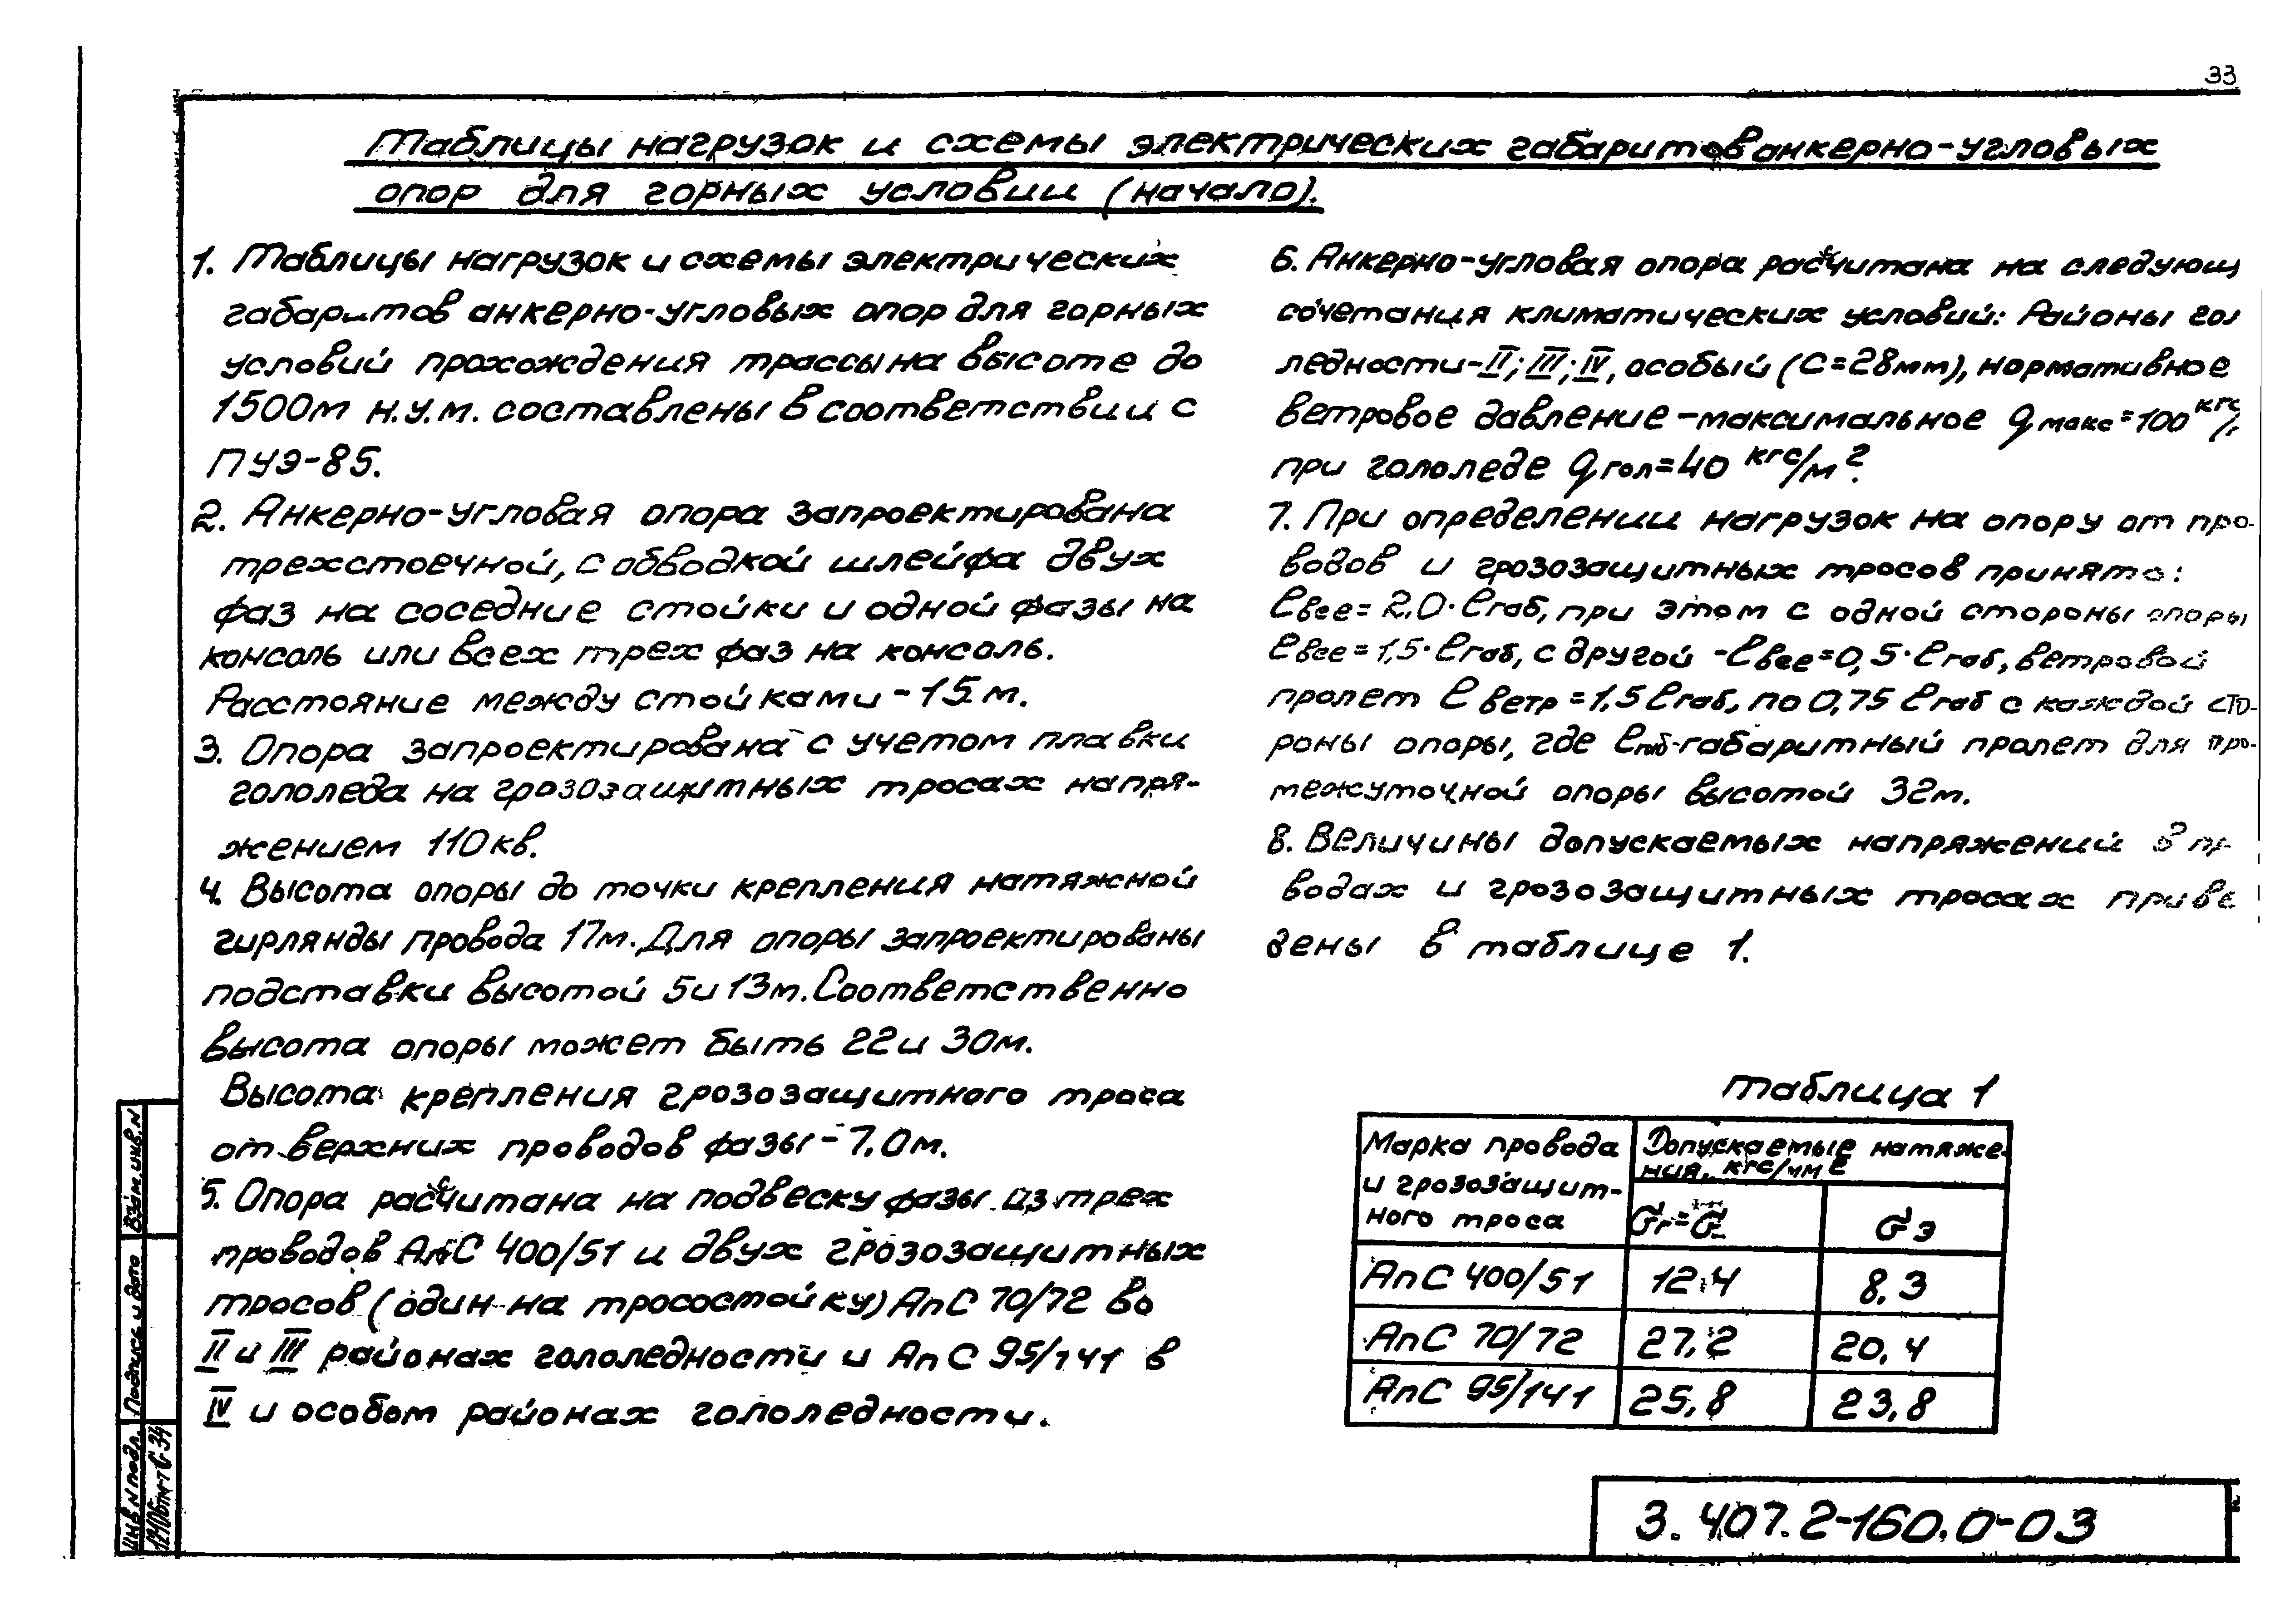 33
Таблицы нагрузок и схемы электрических габаритов анкерно-угловых
опор для горных условии (начало).
1. Таблицы нагрузок и схемы электрических
габаритов анкерно-угловых опор для горных
условий прохождения трассы на высоте до
1500м н.у.м. составлены в соответствии с
ПУЭ-85.
2. Анкерно-угловая опора запроектирована
трехстоечной, с обводкой шлейфа двух
фаз на соседние стойки и одной фазы на
консоль или всех трех фаз на консоль.
Расстояние между стойками - 15 м.
3. Опора запроектирована с учетом плавки
гололеда на грозозащитных тросах напря-
жением 110кв.
4. Высота опоры до точки крепления натяжной
гирлянды провода 17м. Для опоры запроектированы
подставки высотой 5 и 13м. Соответственно
высота опоры может быть 22 и 30м.
Высота крепления грозозащитного троса
от верхних проводов фазы - 7,0м.
5. Опора расчитана на подвеску фазы из трех
проводов АпС 400/51 и двух грозозащитных
тросов (один на тросостойку) АпС 70/72 во
II и III районах гололедности и АпС 95/141 в
IV и особом районах гололедности.
6. Анкерно-угловая опора расчитана на следующ
сочетания климатических условий: Районы гол
ледности-II; III; IV, особый (С=28мм), нормативное
ветровое давление - максимальное qмакс=100 кгс/
при гололеде qгол=40 кгс/м2.
7. При определении нагрузок на опору от про-
водов и грозозащитных тросов принято:
ℓвес=2,0·ℓгаб, при этом с одной стороны опоры
ℓвес=1,5·ℓгаб, с другой -ℓвес=0,5·ℓгаб, ветровой
пролет ℓветр=1,5 ℓгаб, по 0,75 ℓгаб с каждой сто-
роны опоры, где ℓгаб-габаритный пролет для про-
межуточной опоры высотой 32м.
8. Величины допускаемых напряжений в пр
водах и грозозащитных тросах приве
дены в таблице 1.
таблица 1
Марка провода
и грозозащит-
ного троса
Допускаемые натяже-
ния, кгс/мм2
σг=σ-
σэ
АпС 400/51 12,4 8,3
АпС 70/72 27,2 20,4
АпС 95/141 25,8 23,8
Взам. инв. N
Подпись и дата
Инв N подл.
3.407.2-160.0-03